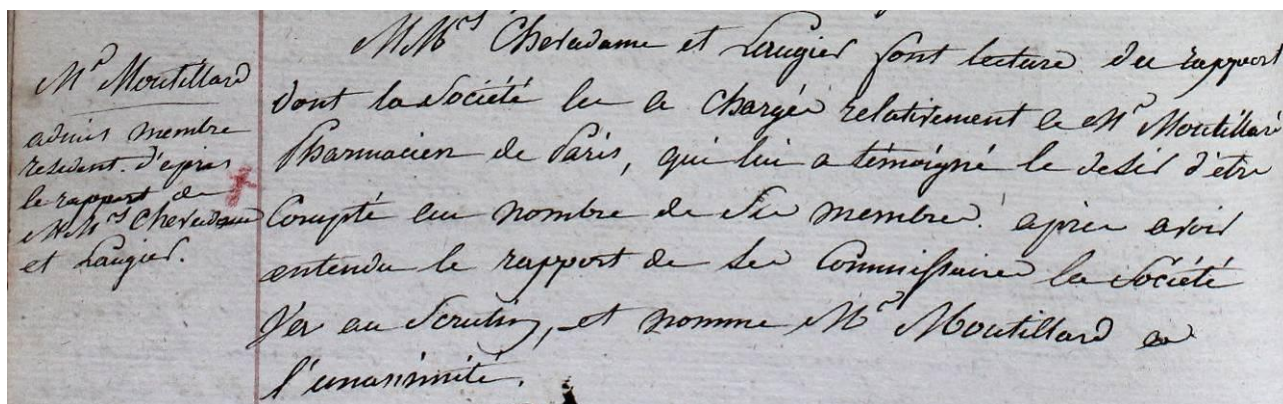 Mr Moutillard
admis membre
résident d'après
le rapport de
MMrs Cheradame
et Laugier.
MMrs Cheradame et Laugier font lecture du rapport
dont la Société les a chargés relativement à Mr Moutillard
Pharmacien de Paris, qui lui a témoigné le desir d'être
Compté au nombre de ses membres. après avoir
entendu le rapport de ses Commissaires la Société
va au Scrutin, et nomme Mr Moutillard à
l'unanimité.